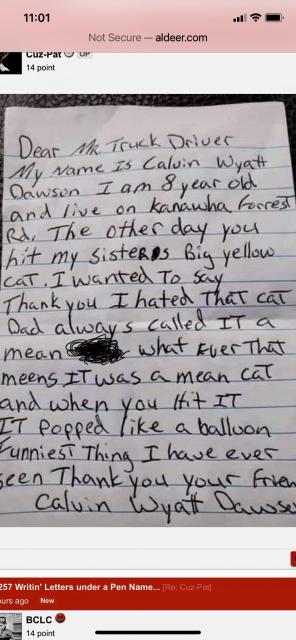 11:01
Not Secure — aldeer.com
Cuz-Pat OP
14 point
Dear Mr. Truck Driver
My Name Is Calvin Wyatt
Dawson I am 8 year old
and live on Kanawha Forrest
Rd, The other day you
hit my sisters Big yellow
cat. I wanted To say
Thank you I hated That cat
Dad always called IT a
mean what Ever That
meens IT was a mean cat
and when you Hit IT
IT Popped like a balloon
Funniest Thing I have ever
seen Thank you your Frien
Calvin Wyatt Dawso
257 Writin' Letters under a Pen Name... [Re: Cuz-Pat]
ours ago New
BCLC
14 point